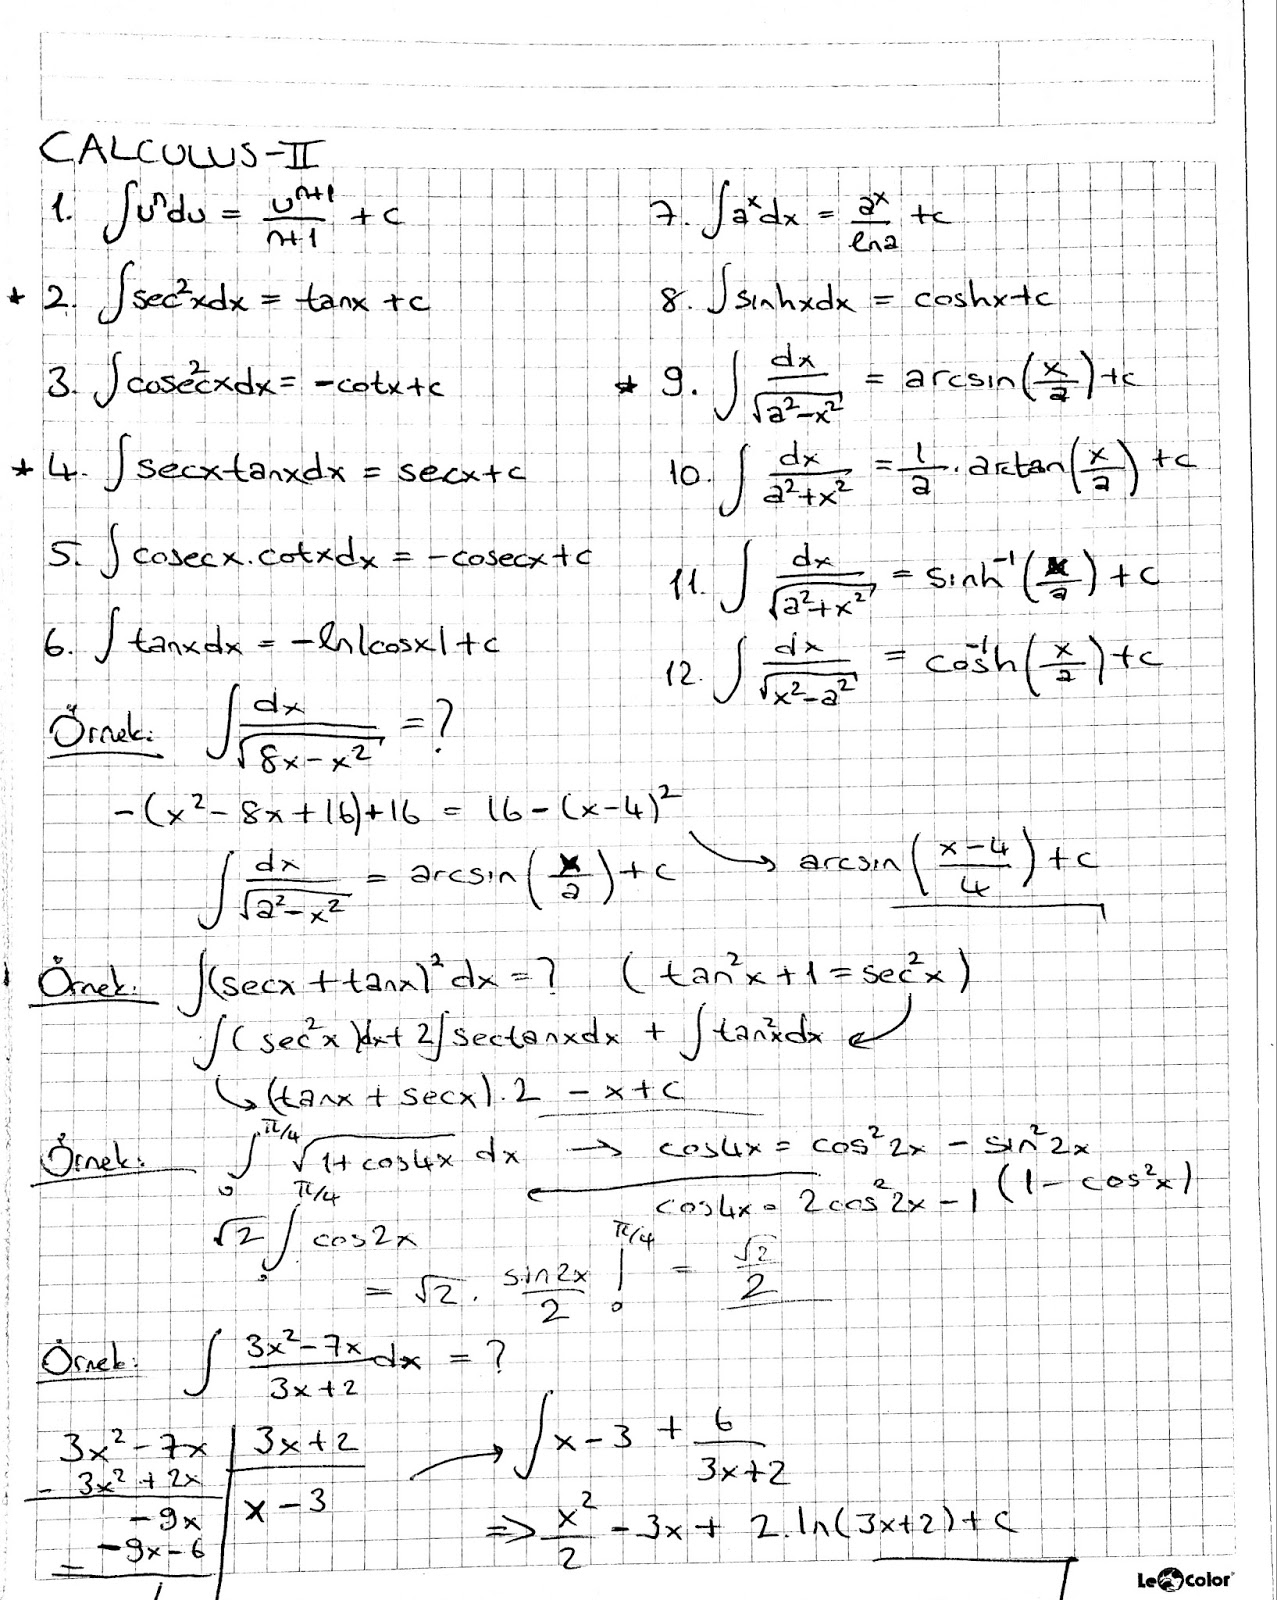 CALCULUS-II
1. ∫uⁿdu = uⁿ⁺¹/n+1 + c
* 2. ∫sec²xdx = tanx + c
3. ∫cosec²xdx = -cotx+c
* 4. ∫secxtanxdx = secx+c
5. ∫cosecx.cotxdx = -cosecx+c
6. ∫tanxdx = -ln|cosx|+c
7. ∫aˣdx = aˣ/lna +c
8. ∫sinhxdx = coshx+c
* 9. ∫ dx/√(a²-x²) = arcsin(x/a)+c
10. ∫ dx/a²+x² = 1/a . arctan(x/a) +c
11. ∫ dx/√(a²+x²) = sinh⁻¹(x/a)+c
12. ∫ dx/√(x²-a²) = cosh⁻¹(x/a)+c
Örnek: ∫ dx/√(8x-x²) = ?
-(x²-8x+16)+16 = 16-(x-4)²
∫ dx/√(a²-x²) = arcsin(x/a)+c → arcsin(x-4/4)+c
Örnek: ∫(secx+tanx)²dx=? (tan²x+1=sec²x)
∫(sec²x)dx+2∫sectanxdx + ∫tan²xdx
(tanx + secx).2 - x+c
Örnek: ∫₀^π/4 √(1+cos4x) dx → cos4x = cos²2x - sin²2x
(1-cos²x)
cos4x = 2cos²2x-1
√2 ∫₀^π/4 cos2x
= √2 . sin2x/2 |₀^π/4 = √2/2
Örnek: ∫ 3x²-7x/3x+2 dx = ?
3x²-7x | 3x+2
- 3x²+2x
x-3
-9x
- -9x-6
→ ∫x-3 + 6/3x+2
=> x²/2 - 3x + 2.ln(3x+2)+c
Le Color